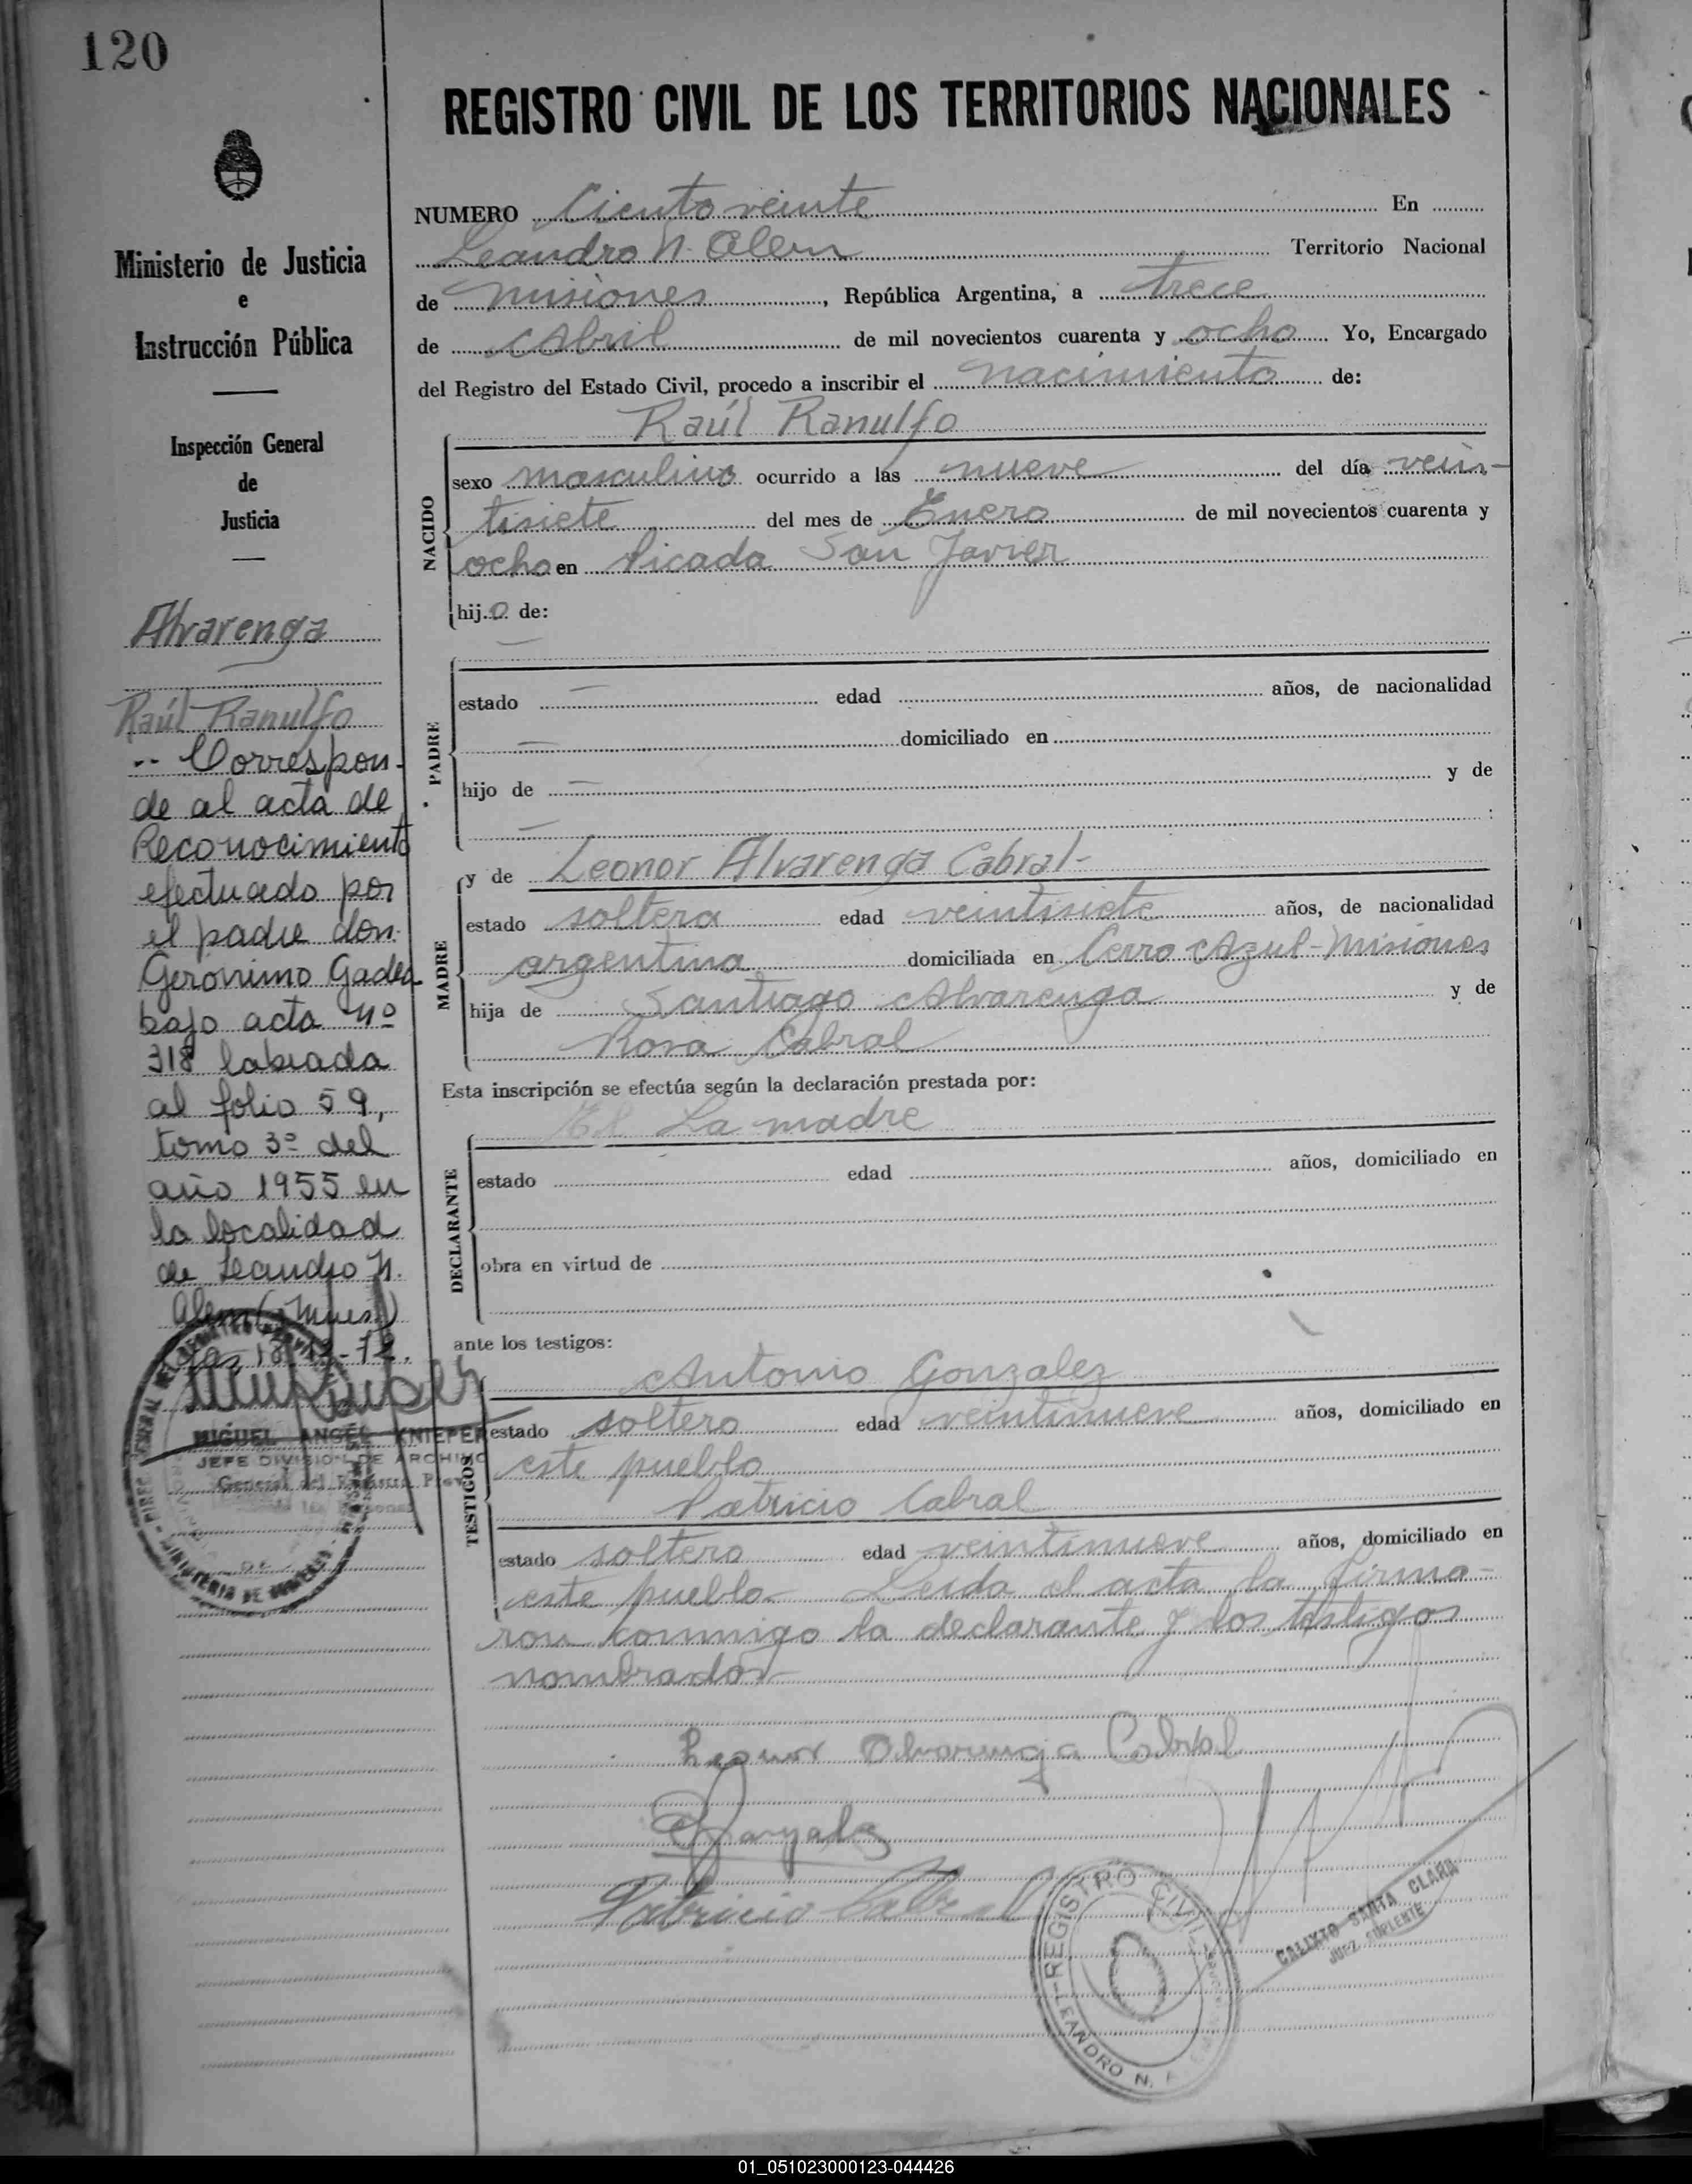 120
Ministerio de Justicia
e
Instrucción Pública
Inspección General
de
Justicia
Alvarenga
Raúl Ranulfo
-- Correspon-
de al acta de
Reconocimiento
efectuado por
el padre don
Geronimo Gadea
bajo acta nº
318 labrada
al folio 59,
tomo 3º del
año 1955 en
la localidad
de Leandro N.
Alem (Mnes)
18-12-72.
MIGUEL ANGEL KNIEPER
JEFE DIVISION DE ARCHIVO
General del Registro Prov
de las Personas
REGISTRO CIVIL DE LOS TERRITORIOS NACIONALES
NUMERO Ciento veinte En
Leandro N. Alem Territorio Nacional
de Misiones, República Argentina, a trece
de Abril de mil novecientos cuarenta y ocho Yo, Encargado
del Registro del Estado Civil, procedo a inscribir el nacimiento de:
Raúl Ranulfo
NACIDO
sexo masculino ocurrido a las nueve del día vein-
tisiete del mes de Enero de mil novecientos cuarenta y
ocho en Picada San Javier
hijo de:
PADRE
estado — edad años, de nacionalidad
— domiciliado en
hijo de — y de
— :
MADRE
y de Leonor Alvarenga Cabral-
estado soltera edad veintisiete años, de nacionalidad
argentina domiciliada en Cerro Azul-Misiones
hija de Santiago Alvarenga y de
Rosa Cabral
Esta inscripción se efectúa según la declaración prestada por:
El La madre
DECLARANTE
estado edad años, domiciliado en
obra en virtud de
ante los testigos:
Antonio Gonzalez
TESTIGOS
estado soltero edad veintinueve años, domiciliado en
este pueblo
Patricio Cabral
estado soltero edad veintinueve años, domiciliado en
este pueblo- Leida el acta la firma-
ron conmigo la declarante y los testigos
nombrados-
Leonor Alvarenga Cabral
Gonzalez
Patricio Cabral
REGISTRO CIVIL
LEANDRO N.
CALIXTO SANTA CLARA
JUEZ SUPLENTE
01_051023000123-044426